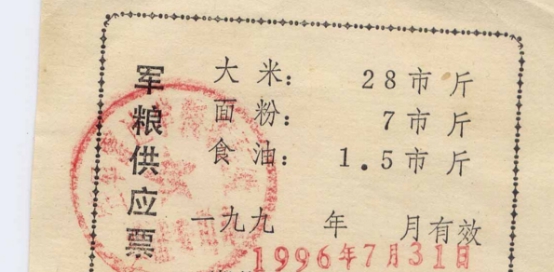 军粮供应票
大米：28市斤
面粉：7市斤
食油：1.5市斤
一九九 年 月有效
1996年7月31日